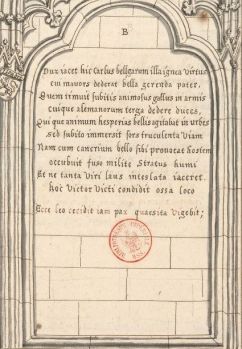 B
Dux iacet hic Carlus belgarum illa ignea virtus
cui mavors dederat bella gerenda pater,
Quem timuit subitis animosus gallus in armis
cuique alemanorum terga dedere duces,
Qui que animum hesperias bellis agitabat in urbes
sed subito immersit fors truculenta viam
Nam cum cancrium bello sibi provocat hostem
occubuit fuso milite stratus humi
Et ne tanta viri laus intestata iaceret
hoc Victor victi condidit ossa loco
Ecce leo cecidit iam pax quaesita vigebit;